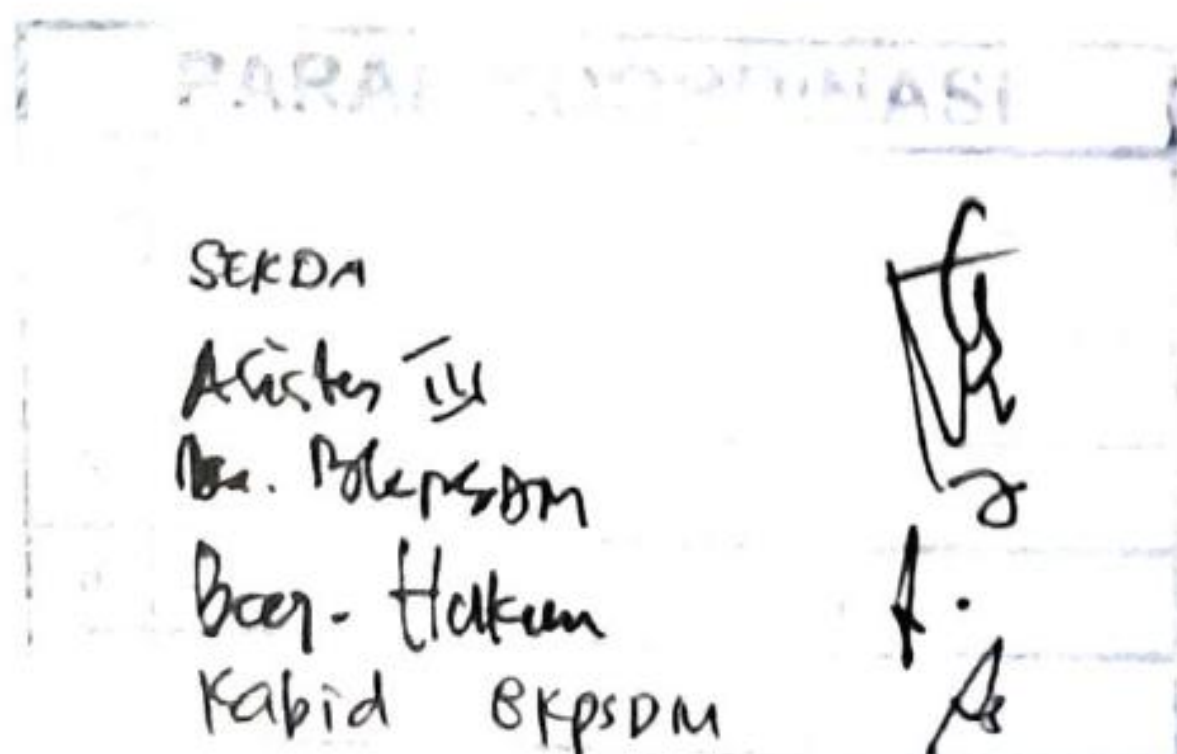 PARAF ABI
SEKDA
Asisten III
Ka. BKPSDM
Bag. Hukum
Kabid BKPSDM